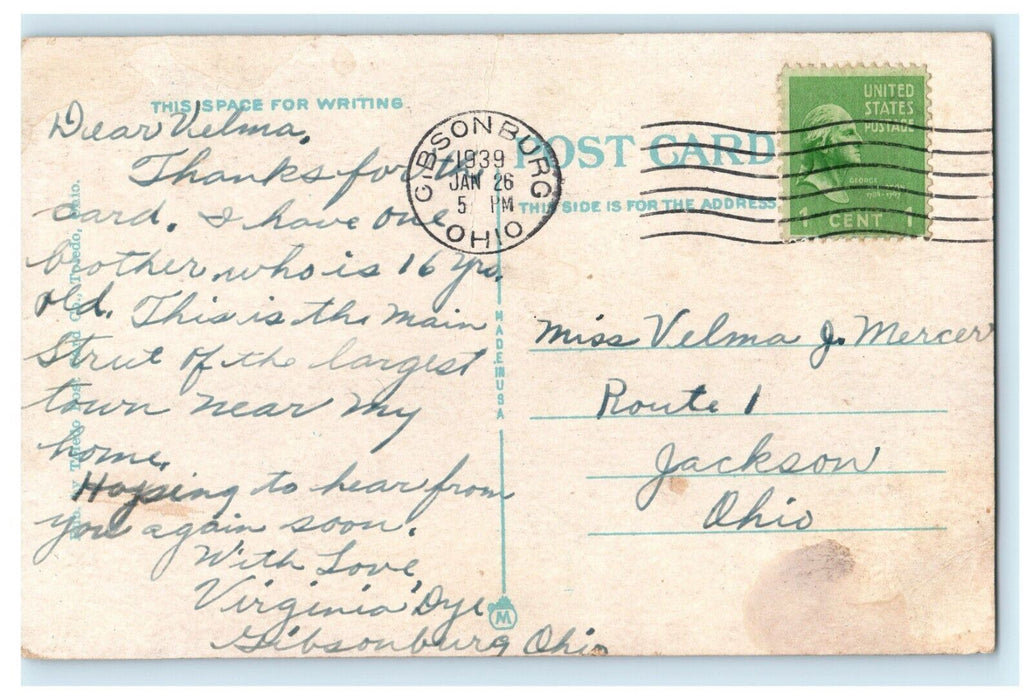 THIS SPACE FOR WRITING
Dear Velma,
Thanks for the
card. I have one
brother, who is 16 yrs.
old. This is the main
Street of the largest
town near my
home.
Hoping to hear from
you again soon.
With Love,
Virginia Dye
Gibsonburg Ohio
Toledo Post Card Co., Toledo, Ohio.
GIBSONBURG
1939
JAN 26
5 PM
OHIO
POST CARD
THIS SIDE IS FOR THE ADDRESS
UNITED
STATES
POSTAGE
GEORGE
1 CENT 1
MADE IN USA
M
Miss Velma J. Mercer
Route 1
Jackson
Ohio